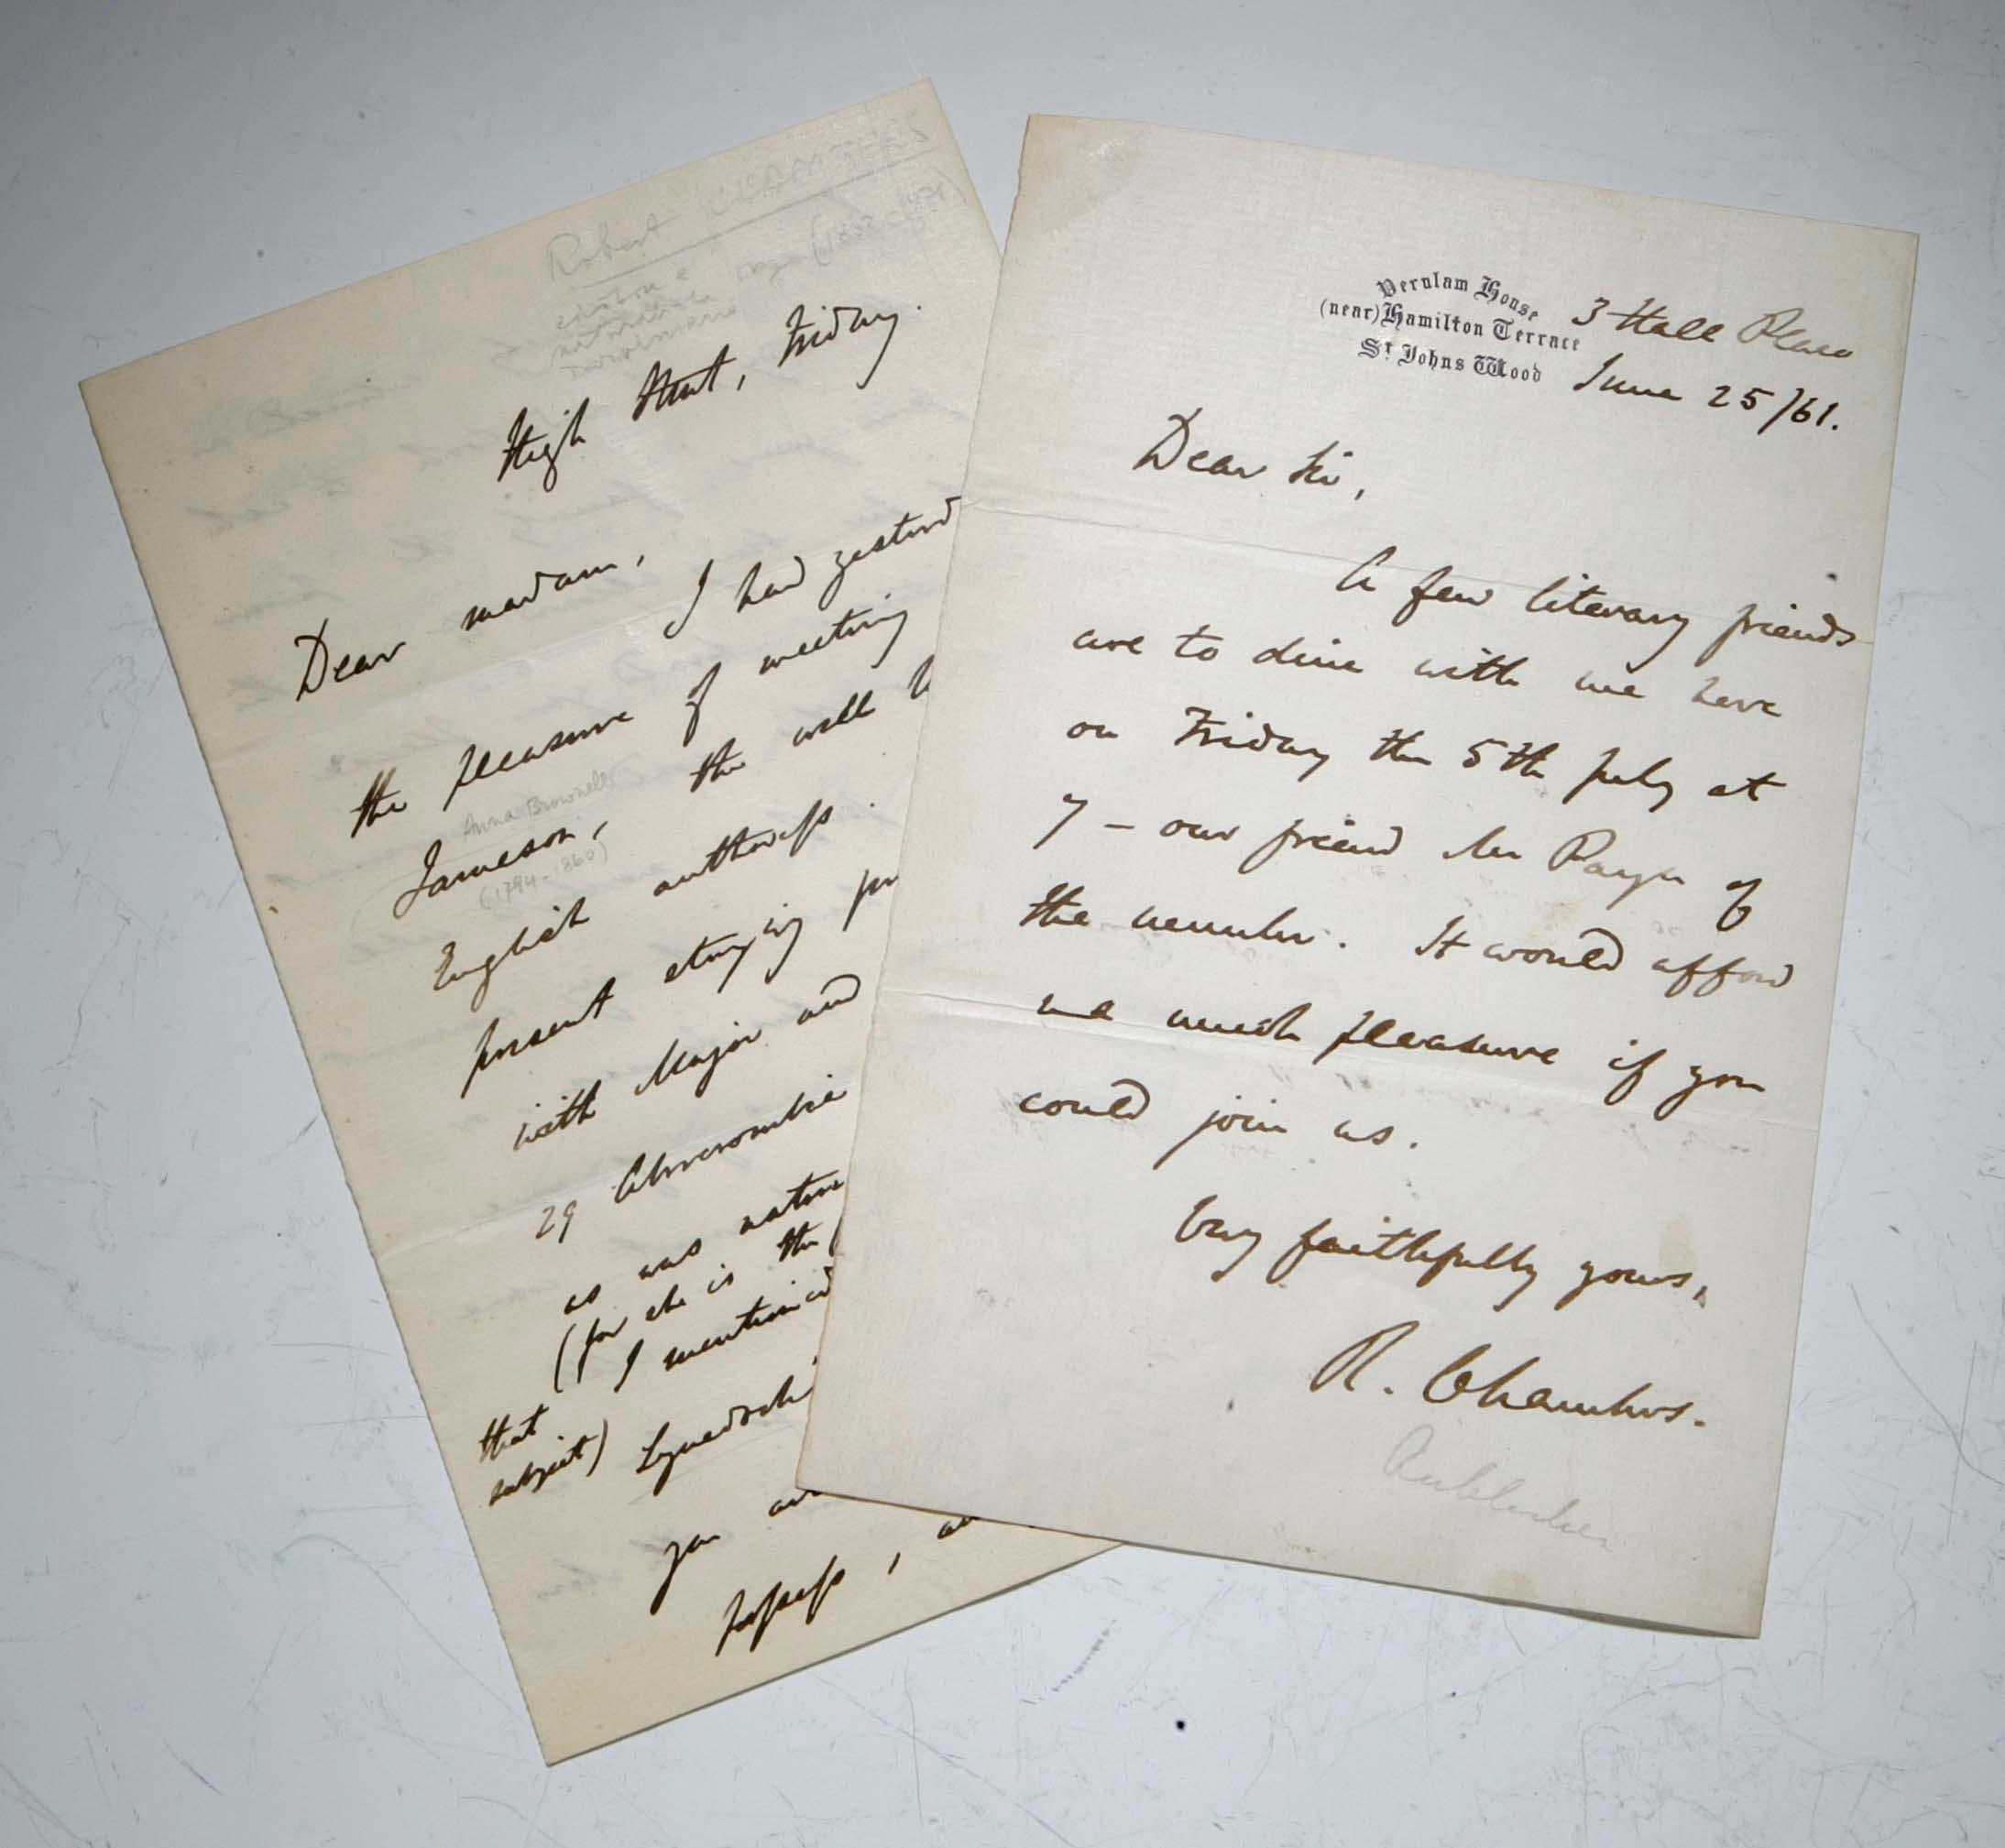 Robert CHAMBERS
High Street, Friday.
Dear madam,
I had yesterd
the pleasure of meeting
Anna Brownell
Jameson, the well k
(1794-1860)
English authoress.
present staying
with Major and
29 Abercrombie
as was natur
(for she is the
I mentioned
that
subject) Lynedoch
you are
possess, an
Verulam House
(near) Hamilton Terrace
St Johns Wood
3 Hall Place
June 25/61.
Dear Sir,
A few literary friends
are to dine with me here
on Friday the 5th July at
7 – our friend Mr Payn of
the number. It would afford
me much pleasure if you
could join us.
Very faithfully yours,
R. Chambers.
Publisher